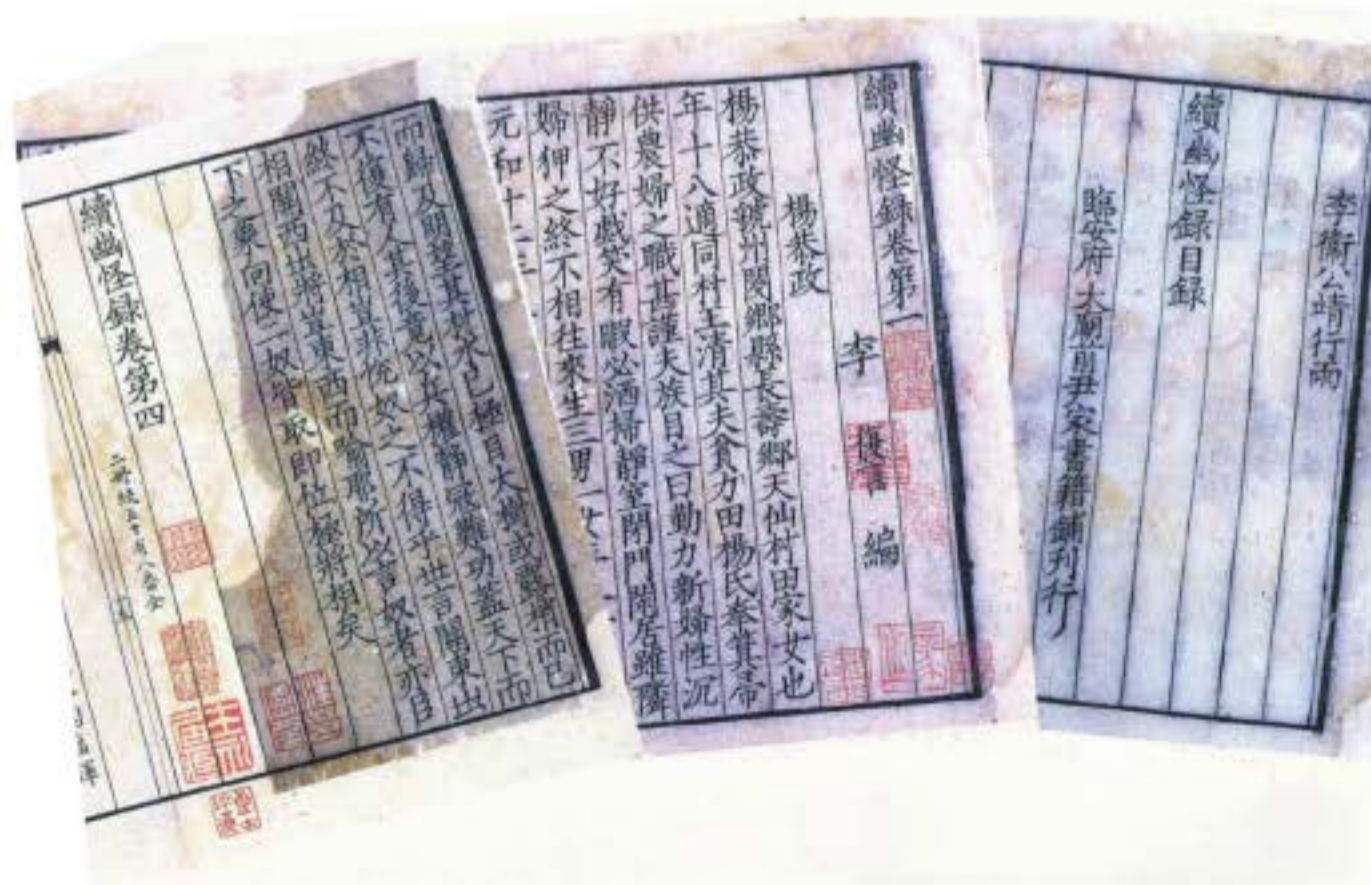 李衛公靖行雨
續幽怪錄目錄
臨安府太廟前尹家書籍鋪刊行
續幽怪錄卷第一
李復言編
楊恭政
楊恭政虢州閿鄉縣長壽鄉天仙村田家女也
年十八適同村王清其夫貪力田楊氏奉箕帚
供農婦之職甚謹夫族目之曰勤力新婦性沉
靜不好戲笑有暇必洒掃靜室閉門閑居雖隣
婦狎之終不相往來生三男一女
元和十二
而歸及明望其居水已極目大樹或露梢而已
不復有人其後竟以兵權靜寇難功蓋天下而
然不及於相豈非悅奴之不得乎世言關東出
相關西出將豈東西而喻耶所以言奴者亦臣
下之象向使二奴皆取即位極將相矣
續幽怪錄卷第四